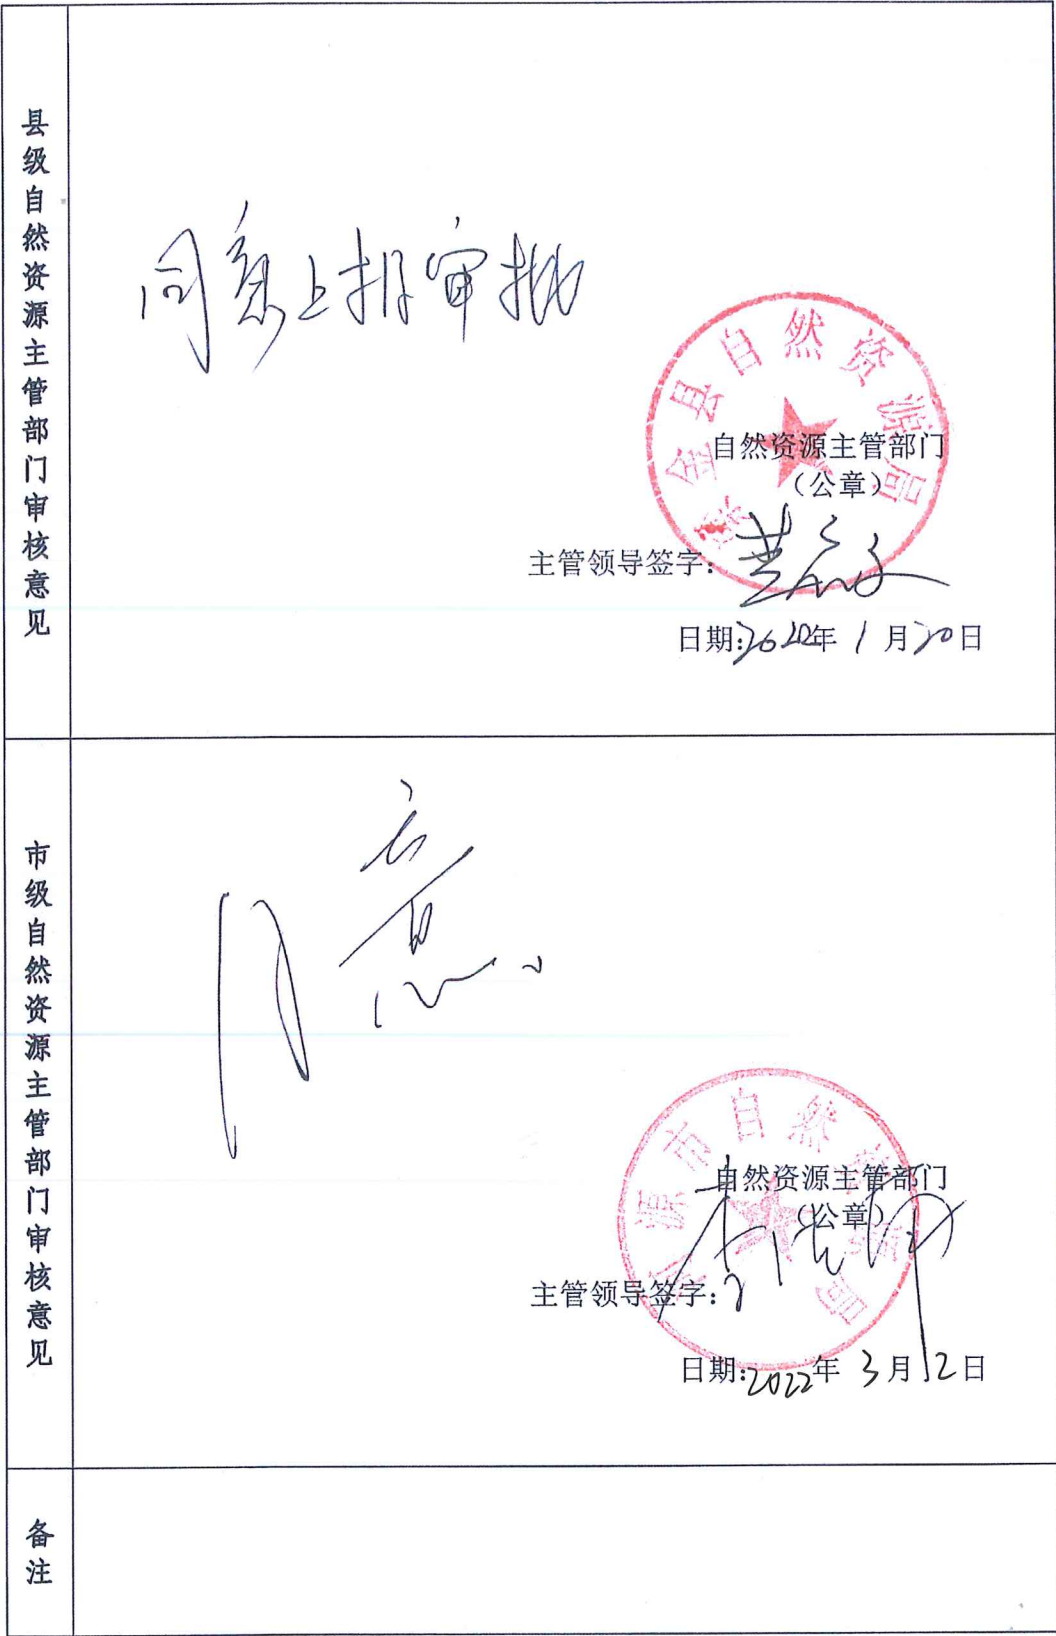 县级自然资源主管部门审核意见
同意上报审批
紫金县自然资源局
自然资源主管部门
（公章）
主管领导签字：
日期：2022年1月20日
市级自然资源主管部门审核意见
同意
河源市自然资源局
自然资源主管部门
（公章）
主管领导签字：
日期：2022年3月2日
备注